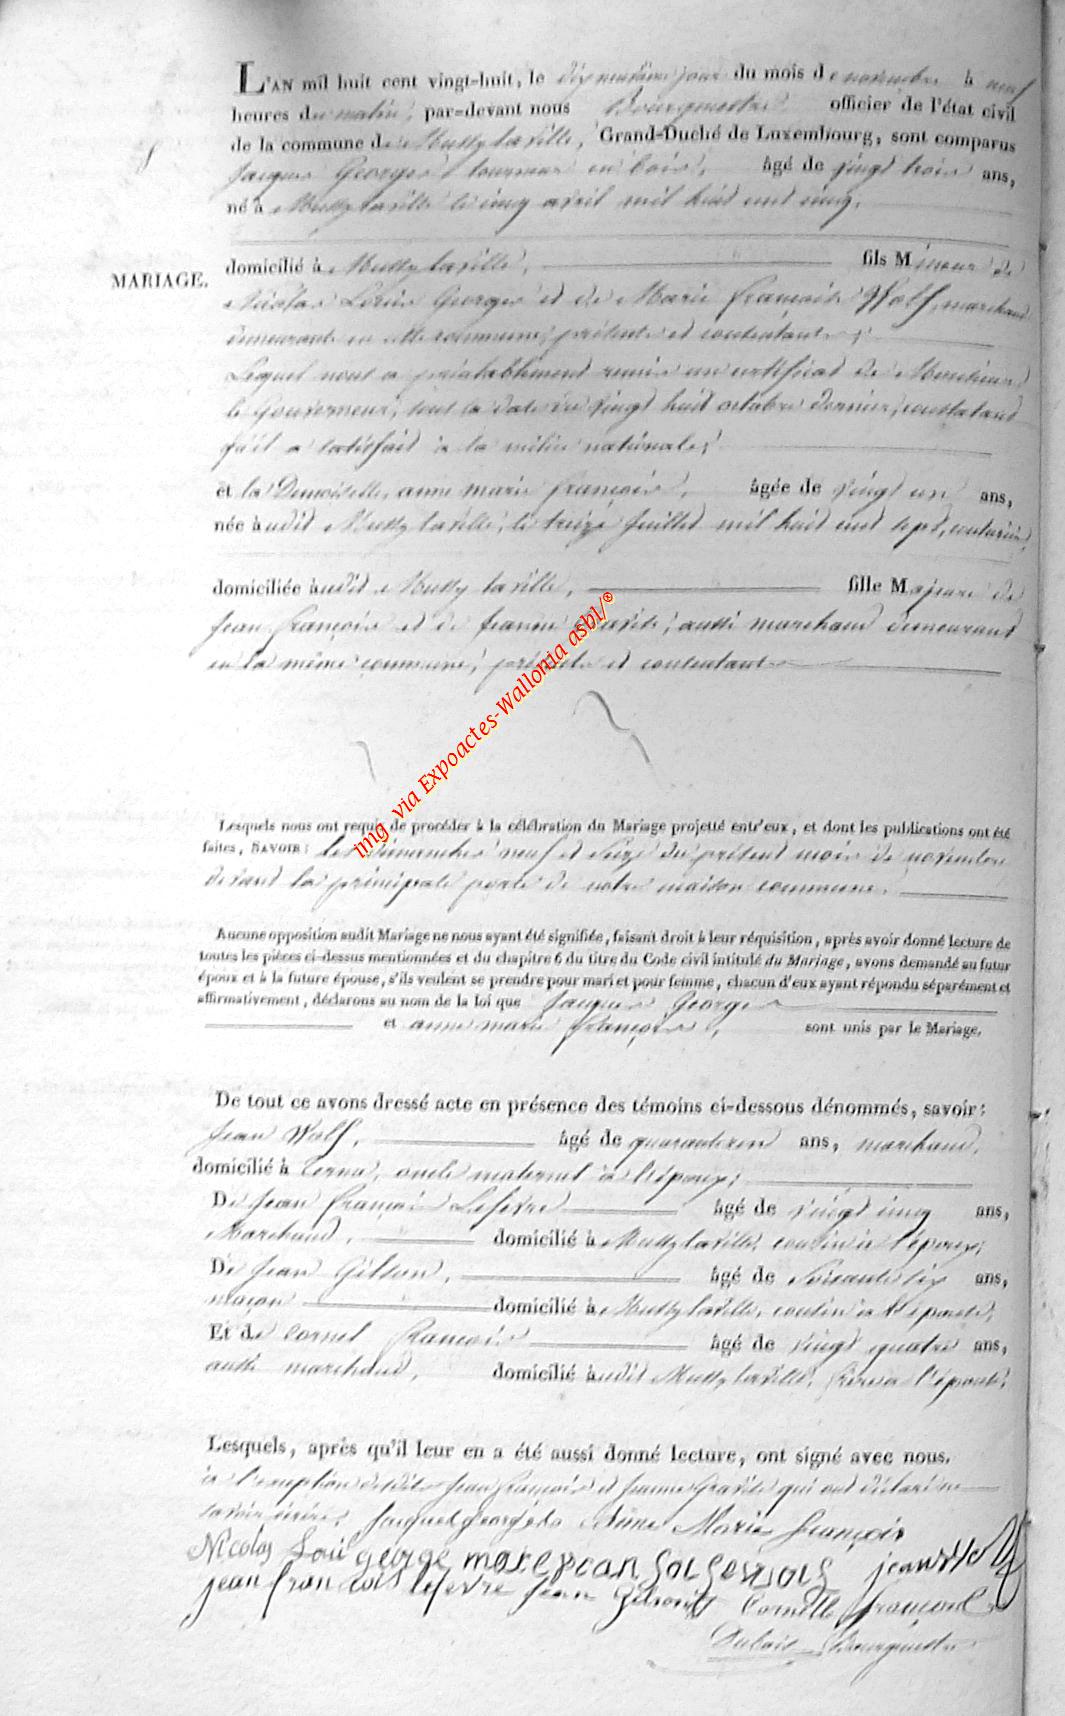 L'AN mil huit cent vingt-huit, le dix neuvième jour du mois de novembre à neuf
heures du matin, par-devant nous Bourgmestre officier de l'état civil
de la commune de Mussy la ville, Grand-Duché de Luxembourg, sont comparus
Jacques Georges tourneur en bois, âgé de vingt trois ans,
né à Mussy la ville le cinq avril mil huit cent cinq,
MARIAGE.
domicilié à Mussy la ville, fils Mineur de
Nicolas Louis Georges et de Marie françoise Wolf, marchand
demeurants en cette commune, présents et consentants;
Lequel nous a préalablement remis un certificat de Monsieur
le Gouverneur, sous la date du vingt huit octobre dernier, constatant
qu'il a satisfait à la milice nationale;
et la Demoiselle anne marie françois, âgée de vingt un ans,
née audit Mussy la ville, le treize juillet mil huit cent sept, couturière,
domiciliée audit Mussy la ville, fille Majeure de
Jean françois et de Jeanne Gravité, aussi marchand demeurant
en la même commune, présents et consentants
img via Expoactes-Wallonia asbl/®
Lesquels nous ont requis de procéder à la célébration du Mariage projetté entr'eux, et dont les publications ont été
faites, SAVOIR: les Dimanches neuf et seize du présent mois de novembre
devant la principale porte de notre maison commune.
Aucune opposition audit Mariage ne nous ayant été signifiée, faisant droit à leur réquisition, après avoir donné lecture de
toutes les pièces ci-dessus mentionnées et du chapitre 6 du titre du Code civil intitulé du Mariage, avons demandé au futur
époux et à la future épouse, s'ils veulent se prendre pour mari et pour femme, chacun d'eux ayant répondu séparément et
affirmativement, déclarons au nom de la loi que Jacques Georges
et anne marie françois, sont unis par le Mariage.
De tout ce avons dressé acte en présence des témoins ci-dessous dénommés, savoir:
Jean Wolf, âgé de quarante un ans, marchand,
domicilié à oncle maternel à l'époux;
De Jean françois Lefèvre âgé de vingt cinq ans,
Marchand, domicilié à Mussy la ville, cousin à l'époux;
De Jean Gilson, âgé de soixante six ans,
maçon domicilié à Mussy la ville, cousin à l'épouse,
Et de Cornel françois âgé de vingt quatre ans,
aussi marchand, domicilié audit Mussy la ville, frère à l'épouse,
Lesquels, après qu'il leur en a été aussi donné lecture, ont signé avec nous.
à l'exception desdits Jean françois et Jeanne Gravité qui ont déclaré ne
savoir écrire. Jacques georges Anne Marie françois
Nicolas Loui george jean wolf
jean francois lefevre Jean Gilson Cornille françois
Dubois Bourgmestre